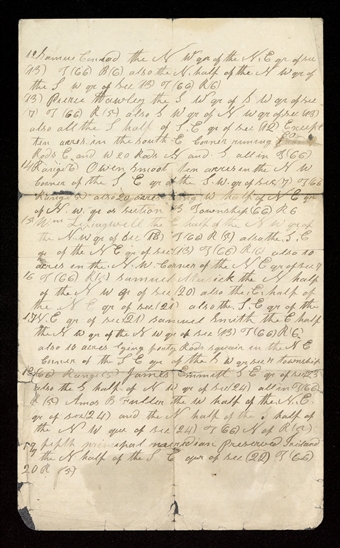 Samuel Conrod the N W qr of the N. E qr of sec
(15) T (66) R (6) also the N. half of the N W qr of
the S W qr of sec 15 T (66) R 6
13) Peirce Hawley the S W qr of S W qr of sec
(7) T (66) R (5) also S W qr of N W qr of sec (13)
also all the S half of S. E qr of sec (12) Except
ten acres in the south E Corner running
Rods E, and W 20 Rods N and S all in T (66)
14 Range 6) Owen Smoot ten acres in the N W
Corner of the S E qr of the S. W. qr of sec (7) T (66
Range (5) also 20 acres W half of N E qr
of N. W. qr of section Township (66) R 6
the half of the N W qr of
the N. W qr of Sec (18) T (66 R (5) also the S. E
qr of the N E qr of sec (13) T (66) R (6) also 10
acres in the N. W. Corner of the N E qr of sec
16 T (66) R (5) Samuel Musick the N half
of the N W qr of sec 20) also the E. half of
the N E qr of sec (20) also the S. E qr of the
N E qr of sec (21) Samuel Smith the E half
the N W qr of the N W qr of sec (13) T (66) R (6)
also 10 acres lying forty Rods square in the N E
Corner of the S E qr of the S W qr sec Township
(66) Range (5) James Emmett S E qr of sec 23
also the S half of N W qr of sec (24) all in T (66)
R (5) Amos B Fuller the W half of the N. E
qr of sec (24) and the N half of the S half of
the N W qr of sec (24) T (66) N of R (5)
fifth principal maradian preserved
the N half of the S E qr of sec (22) T (66)
20 R (5)